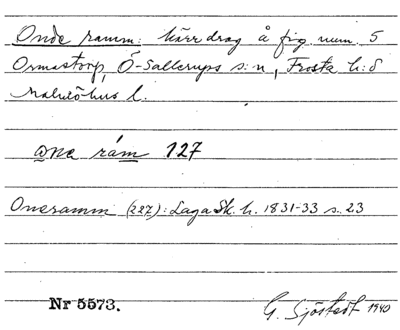 Onde ramm: kärrdrag å fig num. 5
Ormastorp, Ö-Sallerups s:n, Frosta h:d
Malmöhus l.
ɷne rám 127
Oneramm (227): Laga Sk. h. 1831-33 s. 23
Nr 5573.
G. Sjöstedt 1940